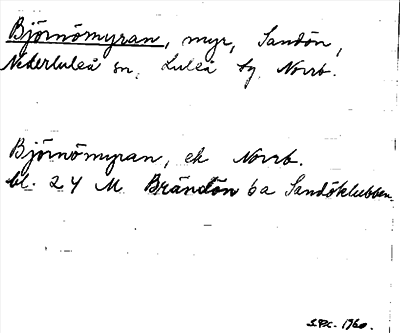 Björnömyran, myr, Sandön,
Nederluleå sn, Luleå tg. Norrb.
Björnömyran, ek Norrb.
bl. 24 M Brändön 6a Sandöklubben
1960.